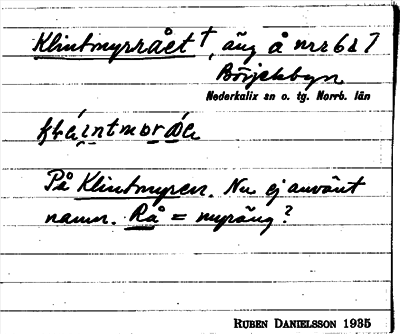 Klintmyrrået †, äng å nr 6 & 7
Börjelsbyn
Nederkalix sn o. tg. Norrb. län
På Klintmyren. Nu ej använt
namn. Rå = myräng?
RUBEN DANIELSSON 1935